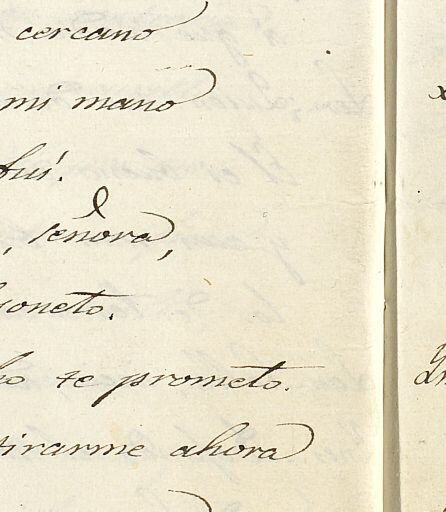 cercano
mi mano
fuí.
, señora,
te prometo.
tirarme ahora